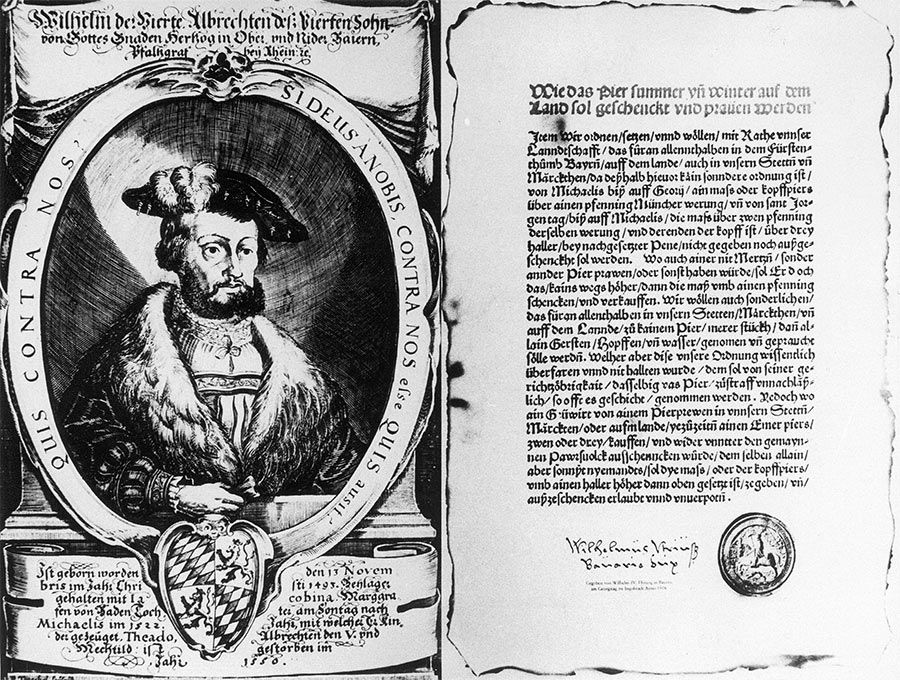 Wilhelm der Vierte Albrechten des Vierten Sohn,
von Gottes Gnaden Hertzog in Ober vnd Nider Baiern,
Pfaltzgraf bey Rhein ꝛc.
QUIS CONTRA NOS?
SI DEUS A NOBIS, CONTRA NOS esse QUIS ausit?
Ist geborn worden den 13 Novem
bris im Jahr Chri sti 1493. Beyläger
gehalten mit Ja cobina Marggra
fen von Baden Toch ter, am Sontag nach
Michaelis im 1522. Jahr, mit welcher Er Kin
der gezeuget, Theado, Albrechten den V. vnd
Mechtild: ist gestorben im
Jahr 1550.
Wie das Pier summer vn̄ winter auf dem
Land sol geschenckt vnd prauen werden
Item Wir ordnen/setzen/vnnd wöllen/mit Rathe vnnser
Lanndtschafft/das füran allennthalben in dem Fürsten-
thůmb Bayrn̄/auff dem lande/auch in vnsern Stettn̄ vn̄
Märckthen/da deßhalb hieuor kain sonndere ordnung ist/
von Michaelis biß auff Georij/ain mass oder kopffpiers
über ainen pfenning Müncher werung/vn̄ von sant Jor-
gen tag/biß auff Michaelis/die mass über zwen pfenning
derselben werung/vnd derenden der kopff ist/über drey
haller/bey nachgesetzter Pene/nicht gegeben noch außge-
schenckht sol werden. Wo auch ainer nit Mertzn̄/sonder
annder Pier prawen/oder sonst haben würde/sol Er doch
das/kains wegs höher/dann die maß vmb ainen pfenning
schencken/vnd verkauffen. Wir wöllen auch sonderlichen/
das füran allenthalben in vnsern Stetten/Märckthen/vn̄
auff dem Lannde/zů kainem Pier/merer stückh/dan̄ al-
lain Gersten/Hopffen/vn̄ wasser/genomen vn̄ gepraucht
sölle werdn̄. Welher aber dise vnsere Ordnung wissentlich
überfaren vnnd nit hallten wurde/dem sol von seiner ge-
richtzöbrigkait/dasselbig vas Pier/zůstraff vnnachläß-
lich/so offt es geschicht/genommen werden. Yedoch wo
ain Gůwirt von ainem Pierprewen in vnnsern Stettn̄/
Märckten/oder aufm lande/yezůzeitn ainen Eimer piers/
zwen oder drey/kauffen/vnd wider vnnter den gemayn-
nen Pawrsuolck ausschenncken würde/dem selben allain/
aber sonnßt nyemandes/sol dye mass/oder der kopffpiers/
vmb ainen haller höher dann oben gesetzt ist/zegeben/vn̄/
außzeschencken erlaubt vnnd vnuerpotn̄.
Gegeben von Wilhelm IV. Herzog in Bayern
am Georgitag zu Ingolstadt Anno 1516